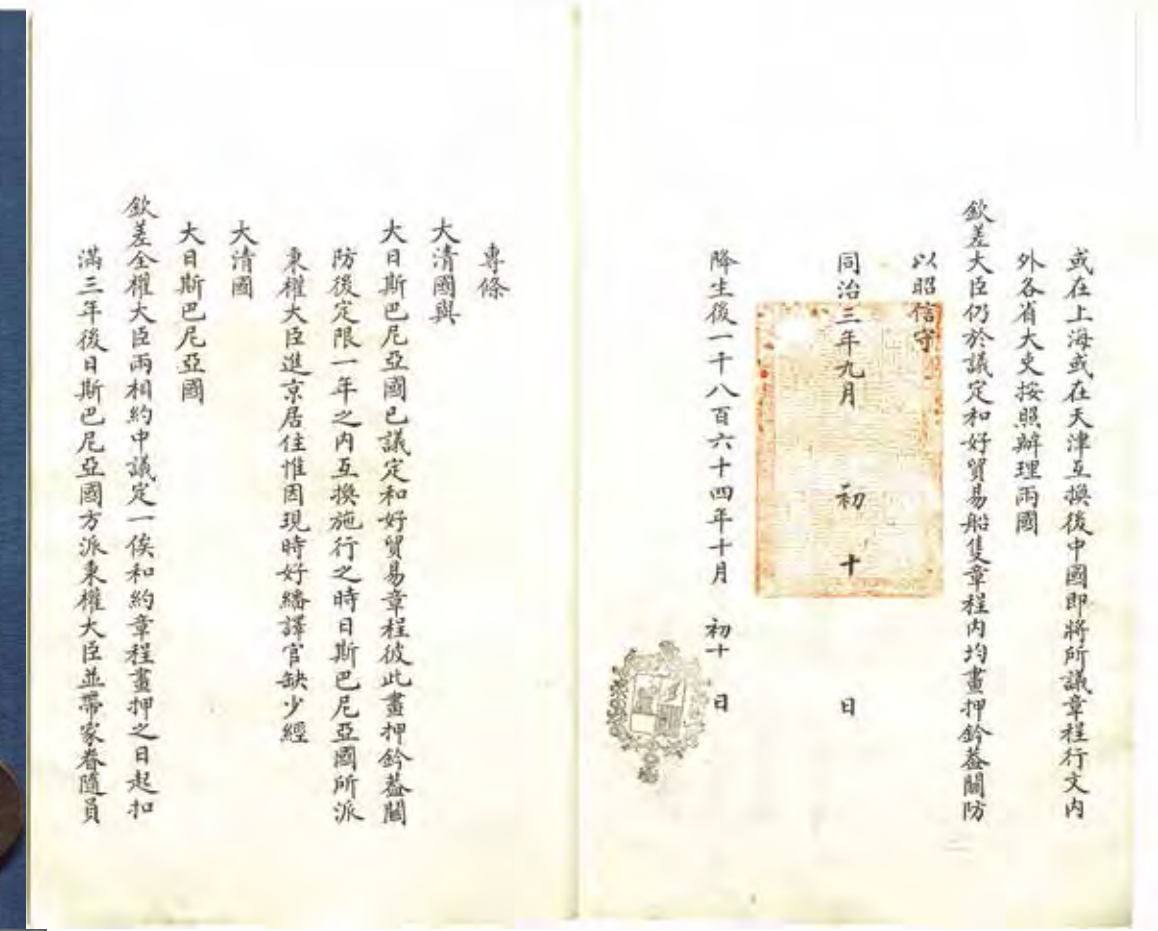 或在上海或在天津互換後中國即將所議章程行文内
外各省大吏按照辦理兩國
欽差大臣仍於議定和好貿易船隻章程内均畫押鈐蓋關防
以昭信守
同治三年九月 初十 日
降生後一千八百六十四年十月 初十 日
專條
大清國與
大日斯巴尼亞國已議定和好貿易章程彼此畫押鈐蓋關
防後定限一年之内互換施行之時日斯巴尼亞國所派
秉權大臣進京居住惟因現時好繙譯官缺少經
大清國
大日斯巴尼亞國
欽差全權大臣兩相約中議定一俟和約章程畫押之日起扣
滿三年後日斯巴尼亞國方派秉權大臣並帶家眷隨員